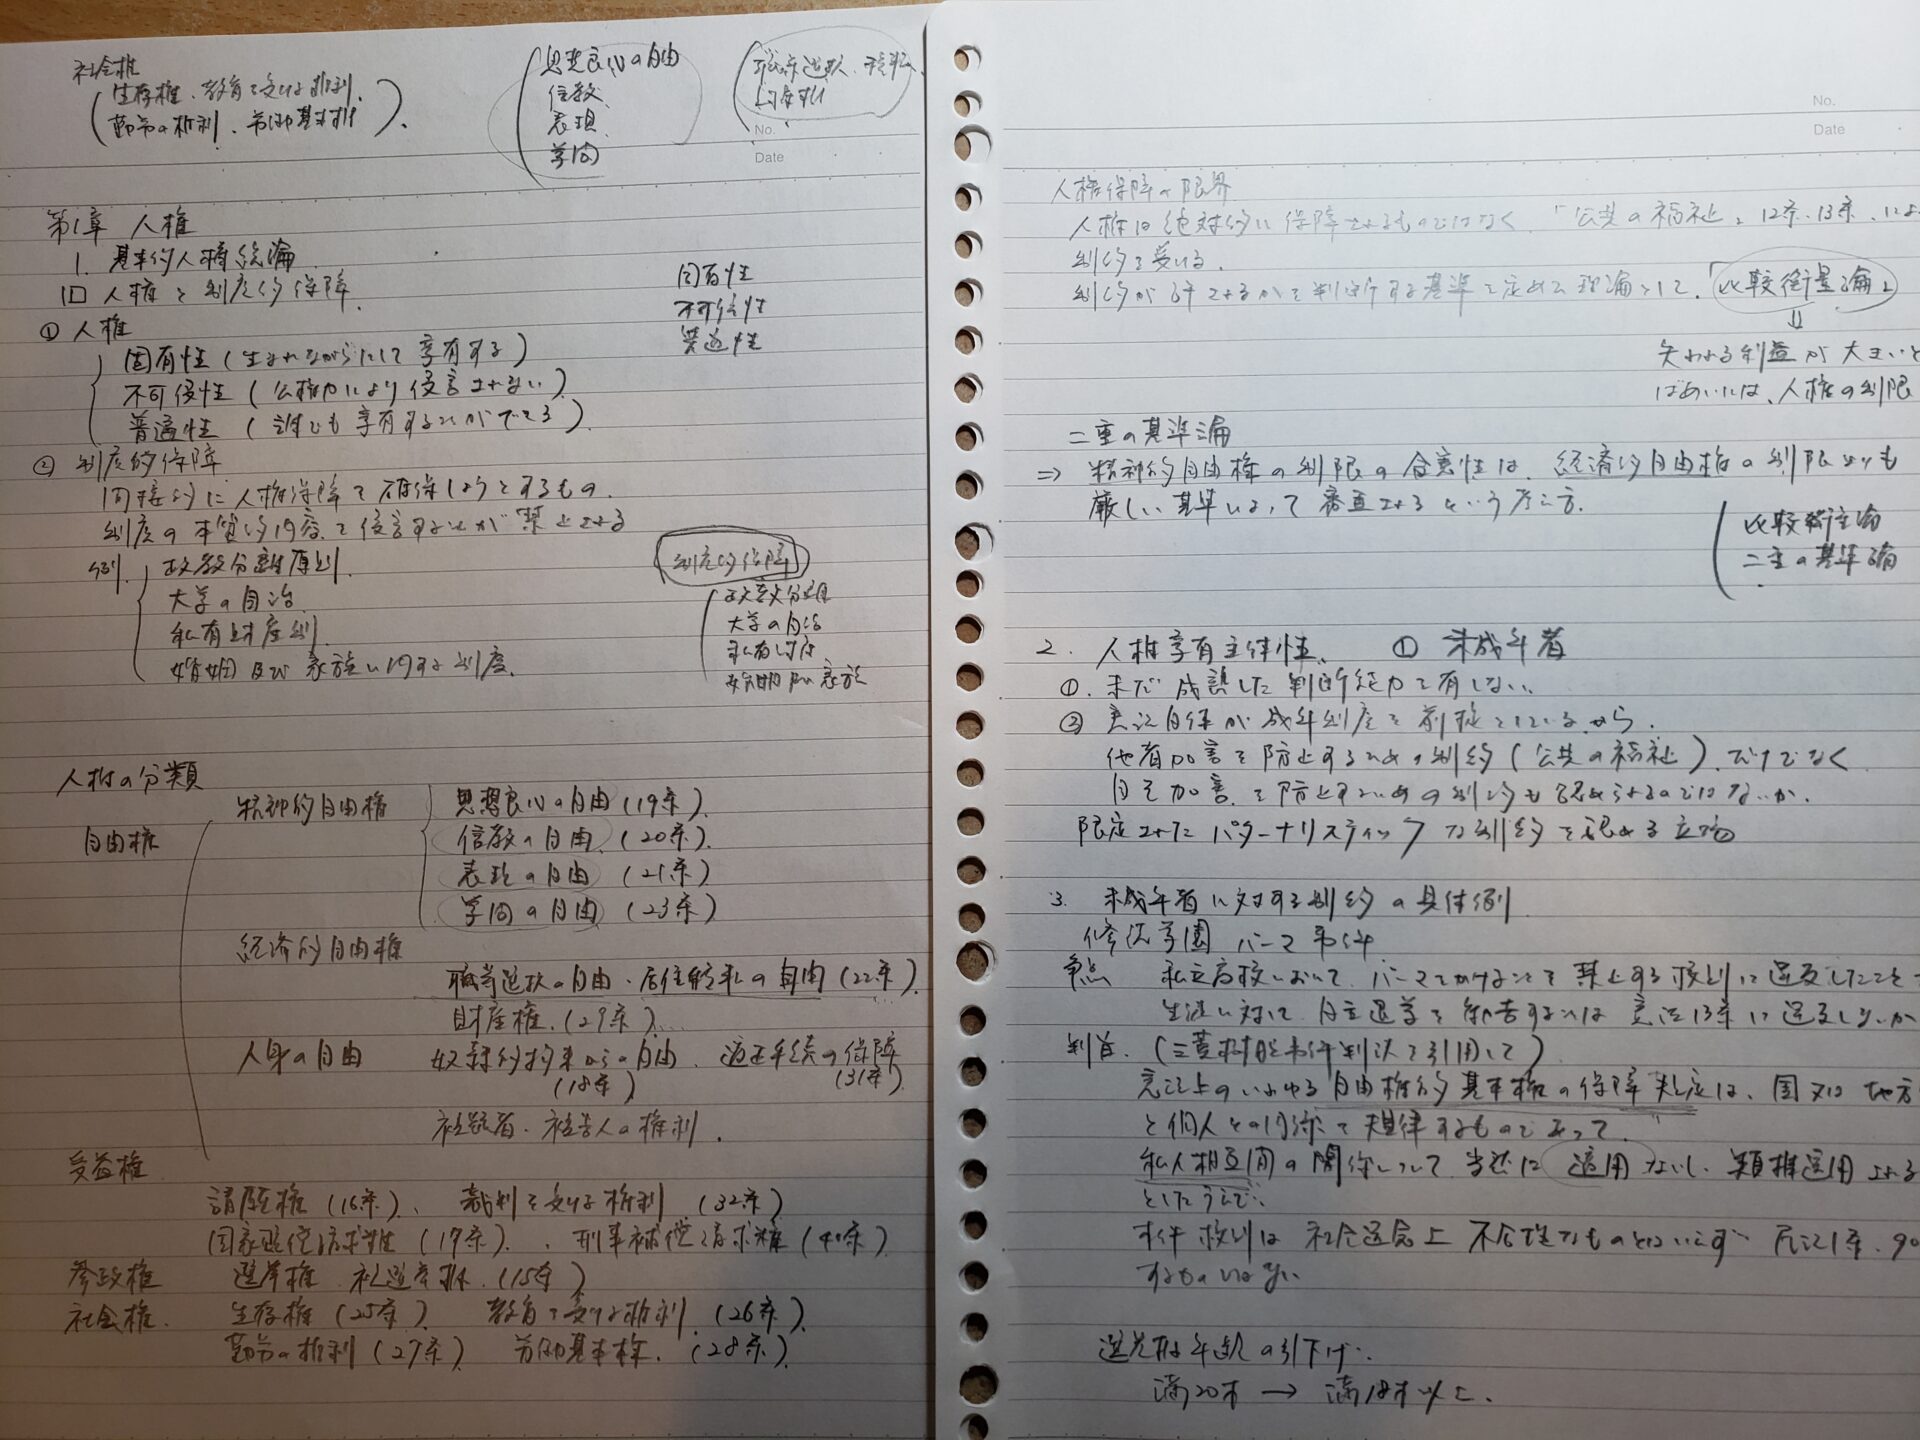 社会権
(生存権、教育を受ける権利、
勤労の権利、労働基本権)、
思想良心の自由
信教
表現
学問
職業選択、移転、
No.
Date
第1章 人権
1. 基本的人権総論
人権と制度的保障
① 人権
固有性(生まれながらにして享有する)
不可侵性(公権力により侵害されない)
普遍性(誰でも享有することができる)
固有性
不可侵性
普遍性
② 制度的保障
間接的に人権保障を確保しようとするもの。
制度の本質的内容を侵害することが禁止される
例. 政教分離原則.
大学の自治.
私有財産制.
婚姻及び家族に関する制度.
制度的保障
政教分離
大学の自治
私有財産
婚姻及び家族
人権の分類
自由権
精神的自由権
思想良心の自由(19条).
信教の自由(20条).
表現の自由(21条)
学問の自由(23条)
経済的自由権
職業選択の自由・居住移転の自由(22条).
財産権.(29条).
人身の自由 奴隷的拘束からの自由. 適正手続の保障
(18条) (31条).
被疑者・被告人の権利.
受益権
請願権(16条)、裁判を受ける権利.(32条)
国家賠償請求権(17条)、刑事補償請求権(40条)
参政権 選挙権 被選挙権.(15条)
社会権. 生存権(25条). 教育を受ける権利.(26条).
勤労の権利(27条) 労働基本権.(28条).
No.
Date
人権保障の限界
人権は絶対的に保障されるものではなく、「公共の福祉」12条・13条、によ
制約を受ける.
制約が許されるかを判断する基準を定めた理論として、「比較衡量論」
⇓
失われる利益が大きいと
ばあいには、人権の制限
二重の基準論
⇒ 精神的自由権の制限の合憲性は、経済的自由権の制限よりも
厳しい基準によって審査されるという考え方.
比較衡量論
二重の基準論
2. 人権享有主体性、 ① 未成年者
①. 未だ成熟した判断能力を有しない.
② 憲法自体が成年制度を前提としているから.
他者加害を防止するための制約(公共の福祉).だけでなく
自己加害を防止するための制約も認められるのではないか.
限定されたパターナリスティックな制約を認める立場
3. 未成年者に対する制約の具体例
修徳学園 パーマ事件
争点 私立高校において、パーマをかけることを禁止する校則に違反したことを
生徒に対して、自主退学を勧告することは憲法13条に違反しないか
判旨.(三菱樹脂事件判決を引用して)
憲法上のいわゆる自由権的基本権の保障規定は、国又は地方
と個人との関係を規律するものであって、
私人相互間の関係について当然に適用ないし類推適用される
としたうえで、
本件校則は社会通念上不合理なものとはいえず 民法1条、90
するものではない
選挙権年齢の引下げ.
満20才 → 満18才以上.